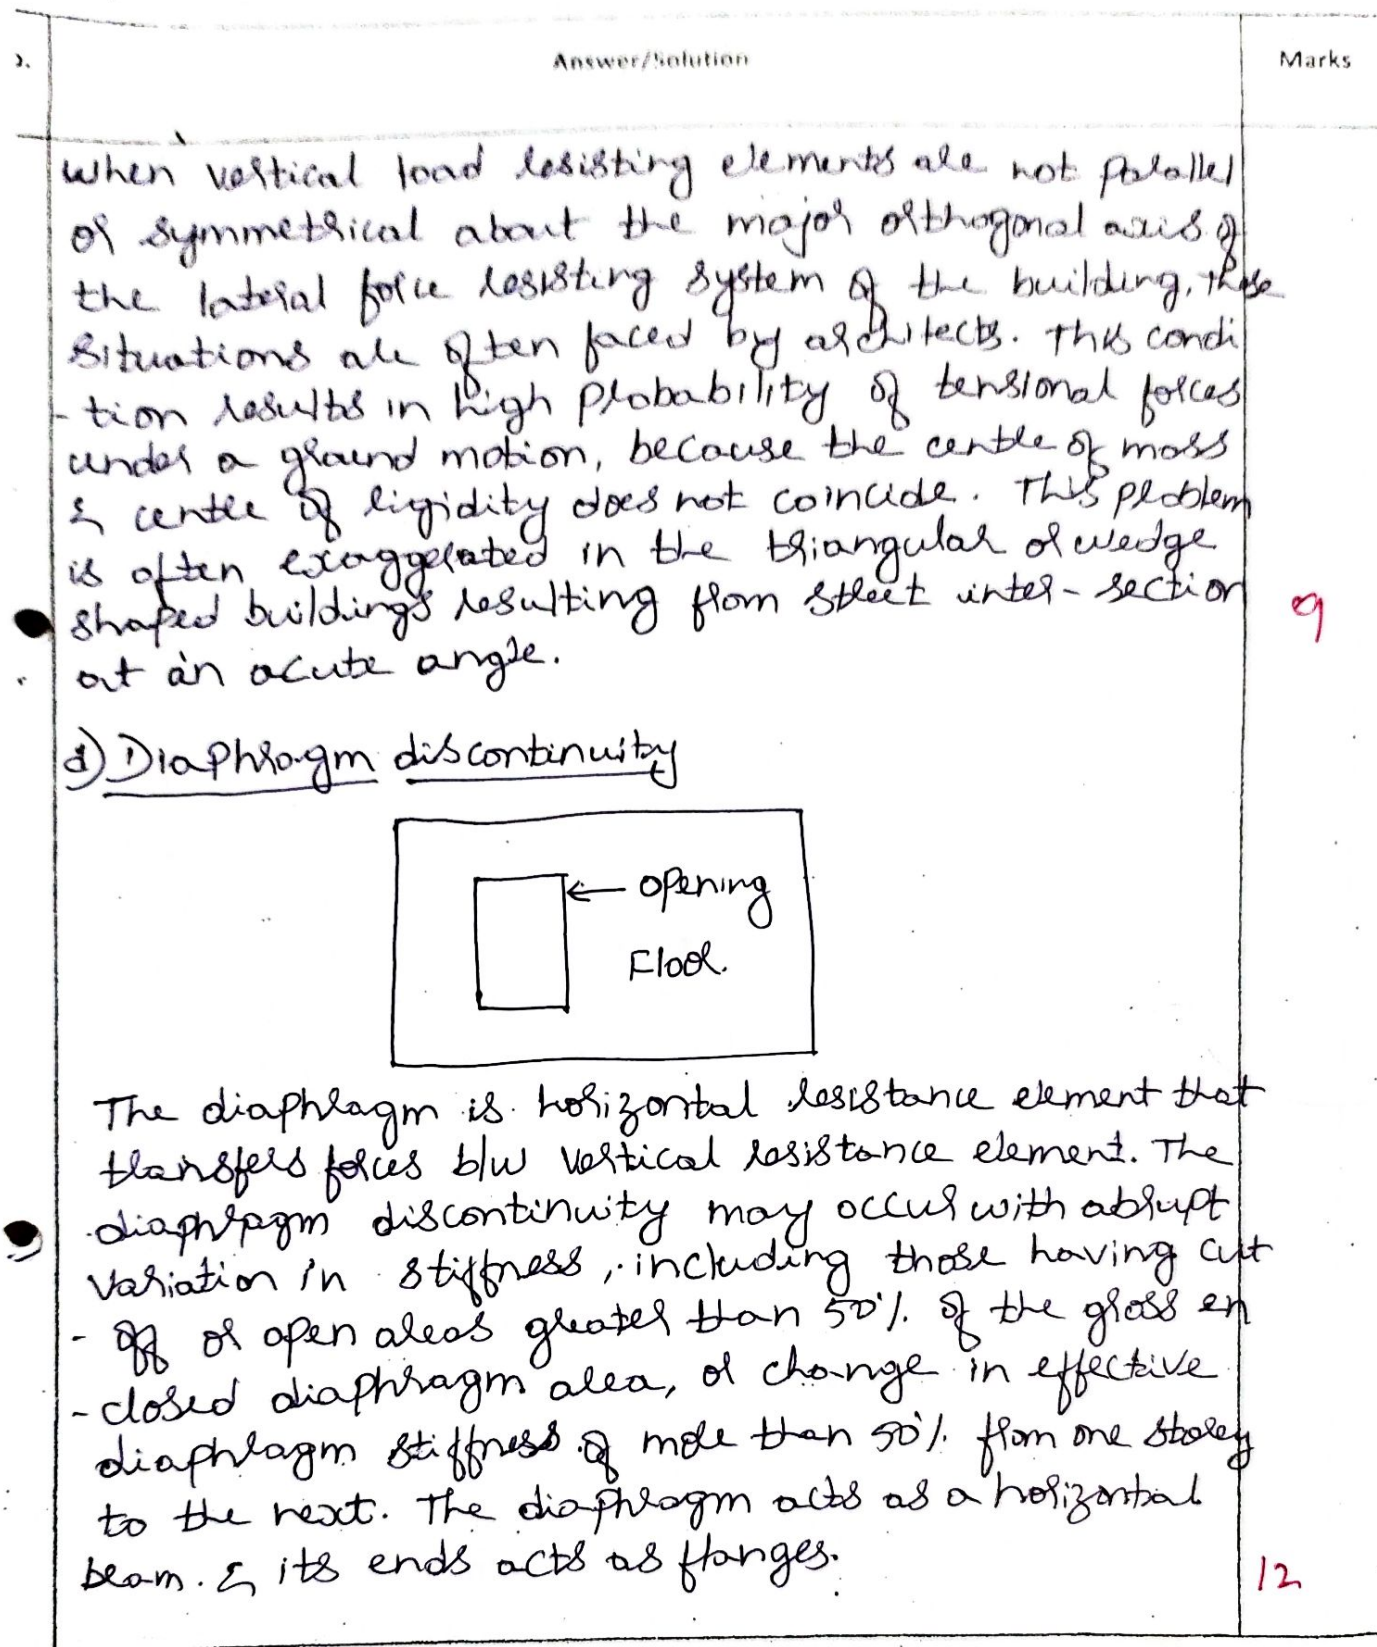 ).
Answer/Solution
Marks
When vertical load resisting elements are not parallel
or symmetrical about the major orthogonal axis of
the lateral force resisting system of the building, these
situations are often faced by architects. This condi
-tion results in high probability of tensional forces
under a ground motion, because the centre of mass
& centre of rigidity does not coincide. This problem
is often exaggerated in the triangular or wedge
shaped buildings resulting from street inter-section
at an acute angle.
9
d) Diaphragm discontinuity
← opening
Floor.
The diaphragm is horizontal resistance element that
transfers forces b/w vertical resistance element. The
diaphragm discontinuity may occur with abrupt
variation in stiffness, including those having cut
- off or open areas greater than 50% of the gross en
- closed diaphragm area, or change in effective
diaphragm stiffness of more than 50% from one storey
to the next. The diaphragm acts as a horizontal
beam. & its ends acts as flanges.
12